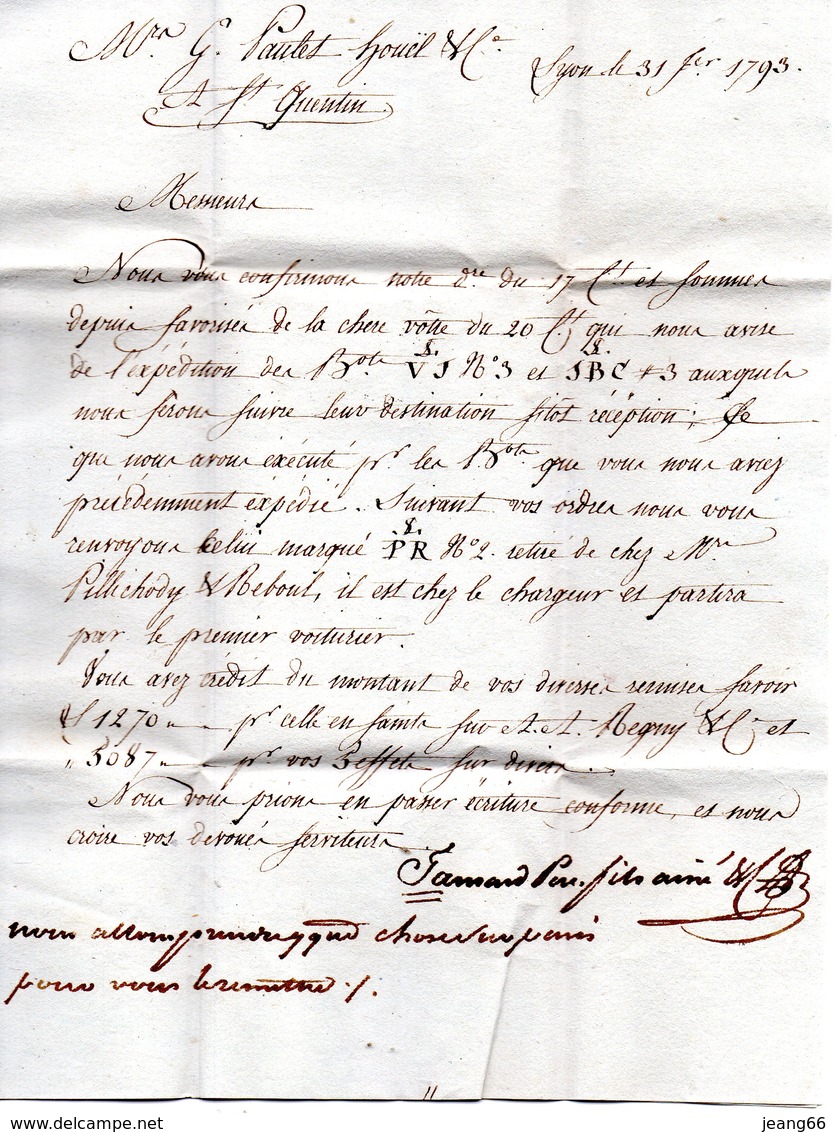 Mrs G. Paulet houël & Ce Lyon le 31 Jer 1793.
A St Quentin
Messieurs
Nous vous confirmons notre dre du 17 Ct et sommes
depuis favorisés de la chere vôtre du 20 Ct qui nous avise
de l'expédition des Bots VJ N°3 et JBC #3 auxquels
nous ferons suivre leur destination sitot réception; Ce
que nous avons exécuté pr les Bots que vous nous aviez
précédemment expédié. Suivant vos ordres nous vous
renvoyons celui marqué PR N°2. retiré de chez Mrs
Pillichody & Reboul, il est chez le chargeur et partira
par le premier voiturier.
Vous avez crédit du montant de vos diverses remises savoir
1270 " pr celle en sur A. A. Regny & Ce et
" 5087 " pr vos 3 effets sur divers.
Nous vous prions en passer écriture conforme, et nous
croire vos dévoués serviteurs
Pere, fils ainé & C
nous allons prendre quelq chose sur paris
pour vous le remettre ./.
delcampe.net
jeang66